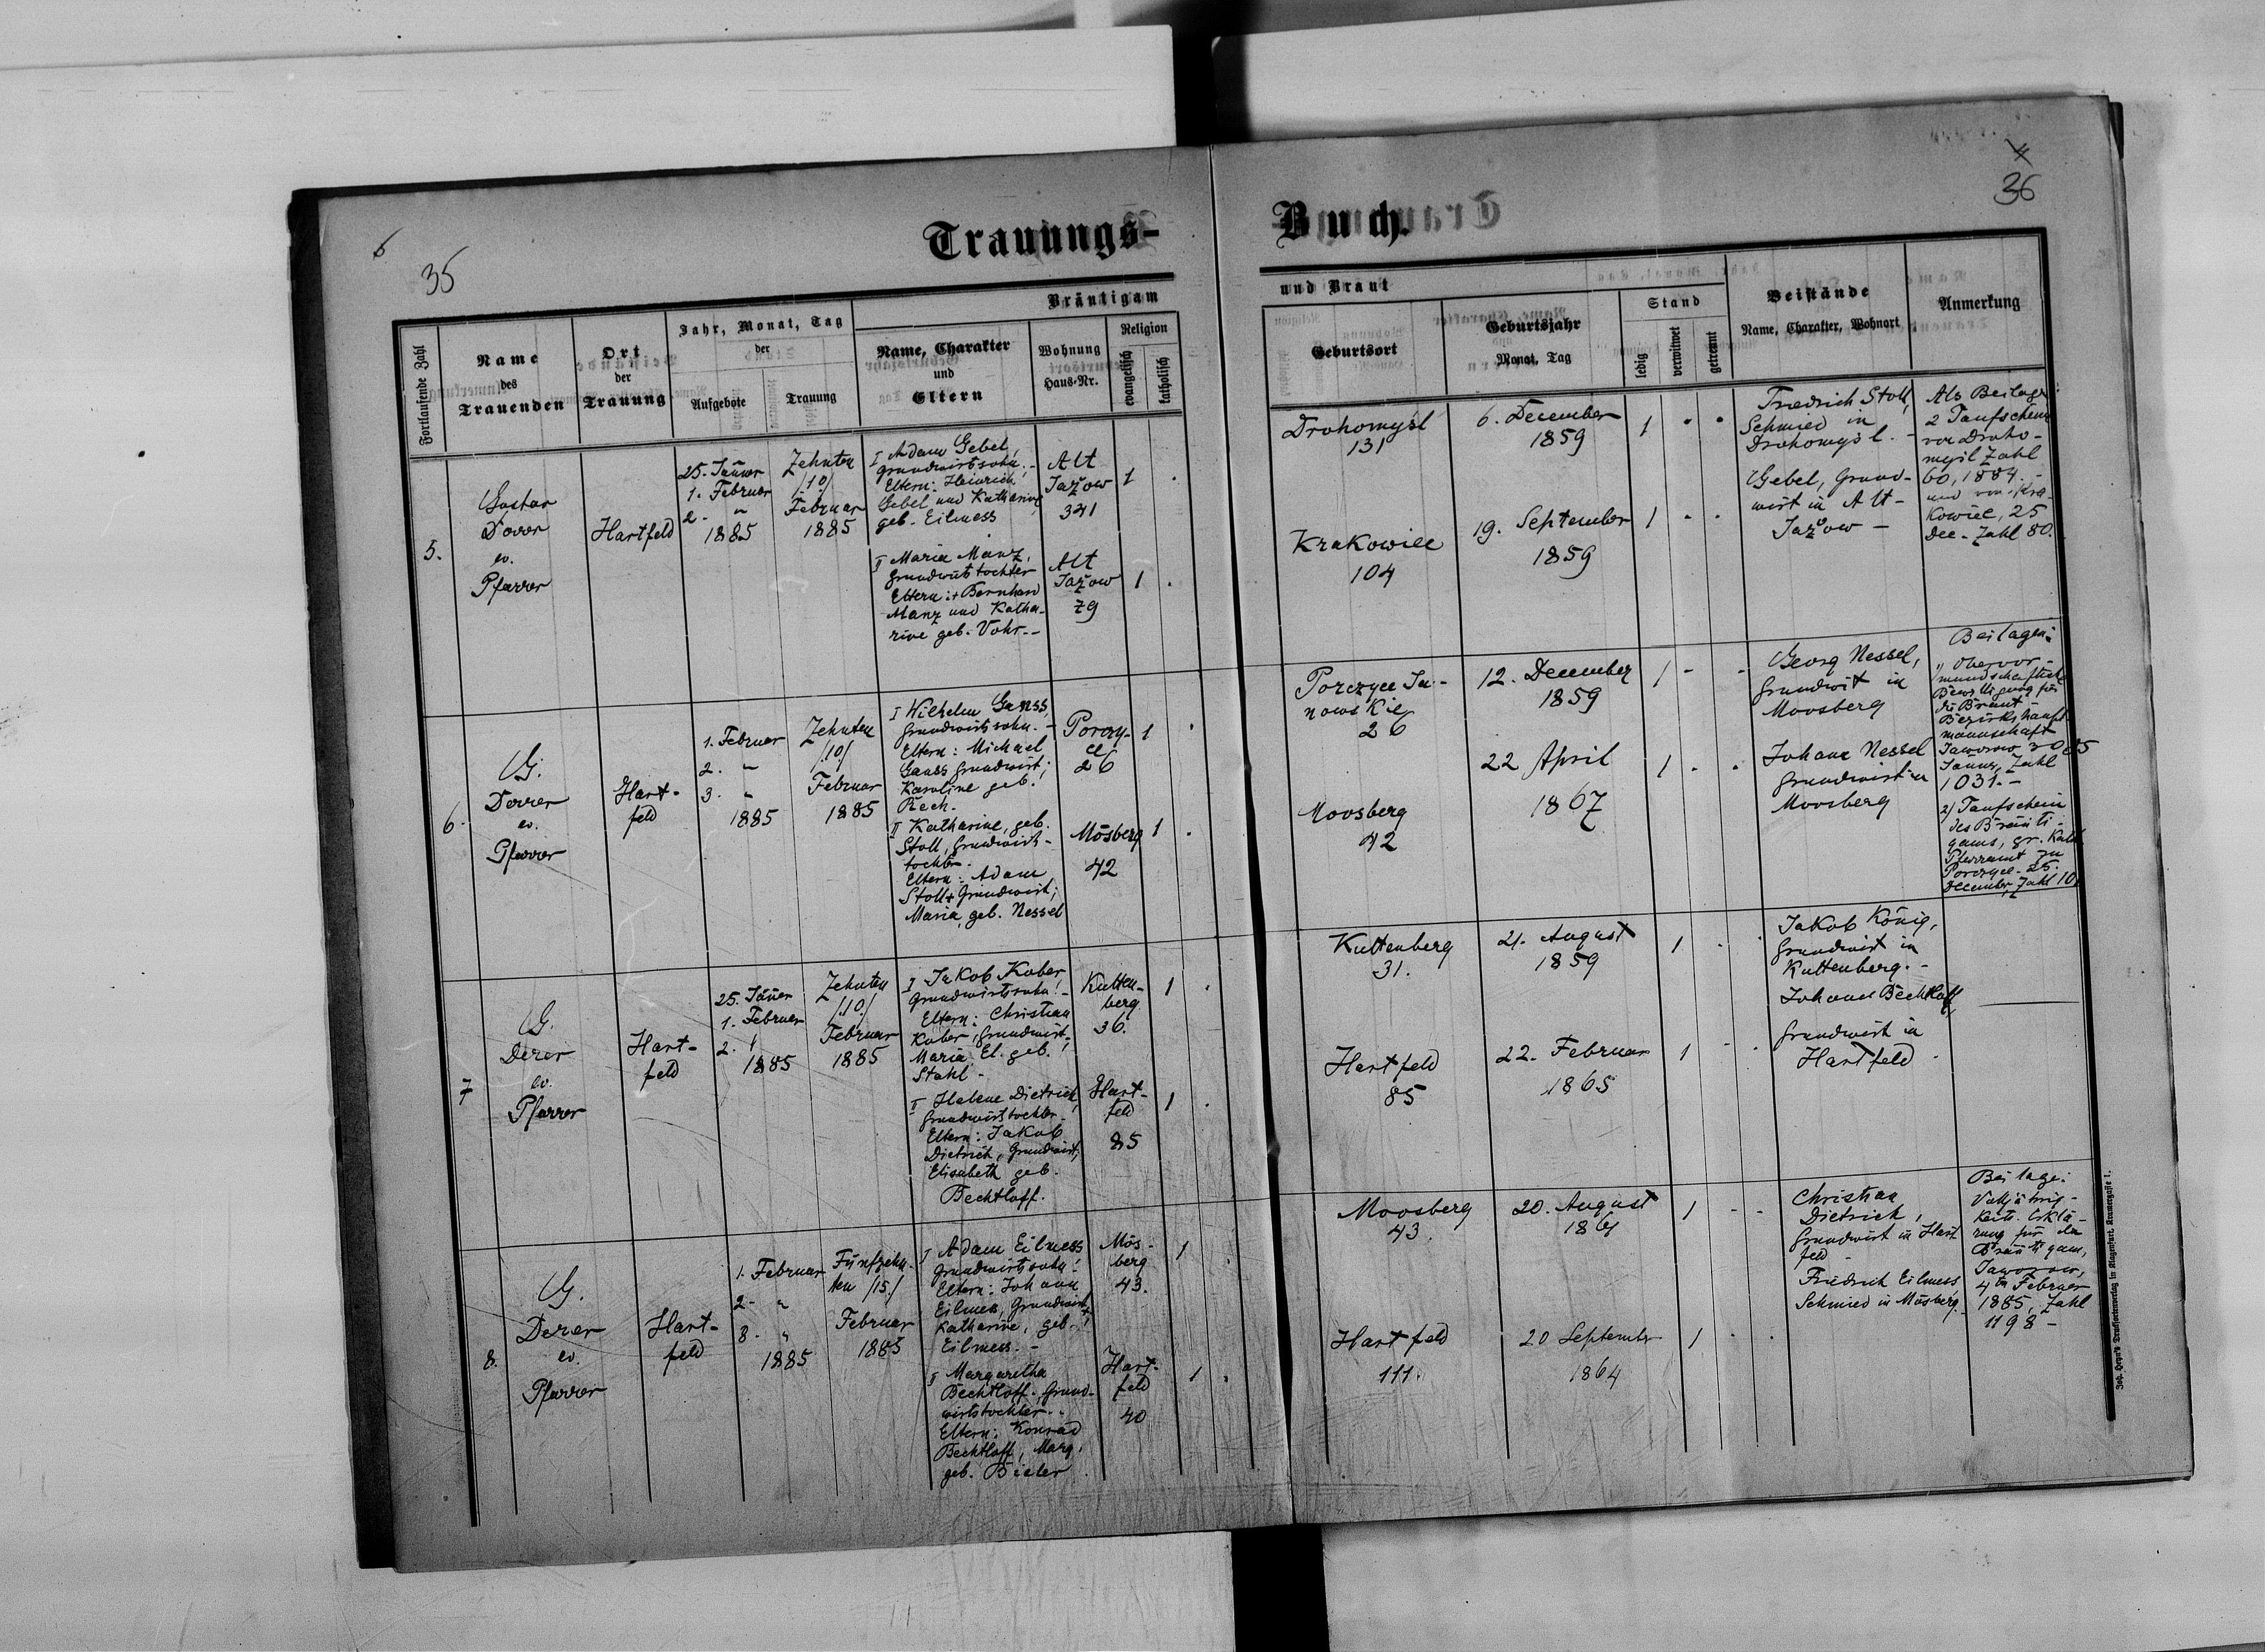 6
35
Trauungs-
Buch.
36
Fortlaufende Zahl
Name
des
Trauenden
Ort
der
Trauung
Jahr, Monat, Tag
der
Aufgebote
Trauung
Bräutigam
Name, Charakter
und
Eltern
Wohnung
Haus-Nr.
Religion
evangelisch
katholisch
und Braut
Geburtsort
Geburtsjahr
Monat, Tag
Stand
ledig
verwitwet
getrennt
Beistände
Name, Charakter, Wohnort
Anmerkung
5.
Gustav
ev.
Pfarrer
Hartfeld
25. Jänner
1. Februar
2. "
1885
Zehnten
/10/
Februar
1885
I Adam Gebel,
Grundwirtssohn.-
Eltern: Heinrich
Gebel und Katharine
geb. Eilmess
Alt
Jažow
341
1
II Maria Manz,
Grundwirtstochter
Eltern: + Bernhard
Manz und Katha-
rine geb. Vohr.-
Alt
Jažow
79
1
Drohomysl
131
6. December
1859
1
Friedrich Stoll,
Schmied in
Drohomysl. -
Als Beilage
2 Taufscheine
von Droho-
mysl Zahl
60, 1884. -
und von Kra-
kowiec, 25
Dec. Zahl 80.
Krakowiec
104
19. September
1859
1
Gebel, Grund-
wirt in Alt-
Jažow -
6.
G.
Derer
ev.
Pfarrer
Hart-
feld
1. Februar
2. "
3. "
1885
Zehnten
/10/
Februar
1885
I Wilhelm Ganss,
Grundwirtssohn. -
Eltern: Michael
Ganss Grundwirt;
Karoline geb.
Rech.
Porczy-
ce
26
1
II Katharine, geb.
Stoll, Grundwirts-
tochter.
Eltern: Adam
Stoll + Grundwirt;
Maria, geb. Nessel
Mösberg
42
1
Porczyce Ja-
nowskie
26
12. December
1859
1
Georg Nessel,
Grundwirt in
Moosberg
Moosberg
42
22 April
1867
1
Johann Nessel
Grundwirt in
Moosberg
Beilagen:
1/ Obervor-
mundschaftliche
Bewilligung für
die Braut -
Bezirkshaupt
mannschaft
Jaworow 30
Jänner, Zahl
1031. -
2/ Taufschein
des Bräuti-
gams, gr. Kath.
Pfarramt zu
Porczyce 25.
December, Zahl 10
7
G.
Derer
ev.
Pfarrer
Hart-
feld
25. Jäner
1. Februar
2. "
1885
Zehnten
/10./
Februar
1885
I Jakob Kuber
Grundwirtssohn! -
Eltern: Christian
Kuber, Grundwirt-
Maria El. geb.
Stahl -
Kutten-
berg
36.
1
II Helene Dietrich,
Grundwirtstochter -
Eltern: Jakob
Dietrich, Grundwirt;
Elisabeth geb.
Bechtloff.
Hart-
feld
85
1
Kuttenberg
31.
21. August
1859
1
Jakob König,
Grundwirt in
Kuttenberg. -
Hartfeld
85
22. Februar
1865
1
Johann Bechtloff
Grundwirt in
Hartfeld
8.
G.
Derer
ev.
Pfarrer
Hart-
feld
1. Februar
2. "
8. "
1885
Fünfzehn-
ten /15./
Februar
1885
I Adam Eilmess
Grundwirtssohn!
Eltern: Johann
Eilmes, Grundwirt
Katharine, geb.
Eilmess. -
Mös-
berg
43.
1
II Margaretha
Bechtloff, Grund-
wirtstochter. -
Eltern: Konrad
Bechtloff, Marg.
geb. Bieler
Hart-
feld
40
1
Moosberg
43.
20. August
1861
1
Christian
Dietrich,
Grundwirt in Hart
feld -
Hartfeld
111.
20 September
1864
1
Friedrich Eilmess
Schmied in Mösberg.
Beilage:
Volljährig-
keits-Erklä-
rung für den
Bräutigam,
Jaworow,
4ten Februar
1885, Zahl
1198 -
Joh. Heyn's Drucksortenverlag in Klagenfurt, Kramergasse 1.